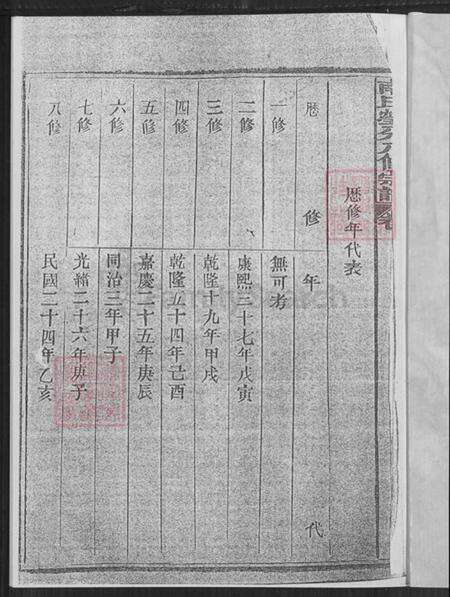 歴修年代表
歴修 年代
一修 無可考
二修 康熙三十七年戊寅
三修 乾隆十九年甲戌
四修 乾隆五十四年己酉
五修 嘉慶二十五年庚辰
六修 同治三年甲子
七修 光緒二十六年庚子
八修 民國二十四年乙亥